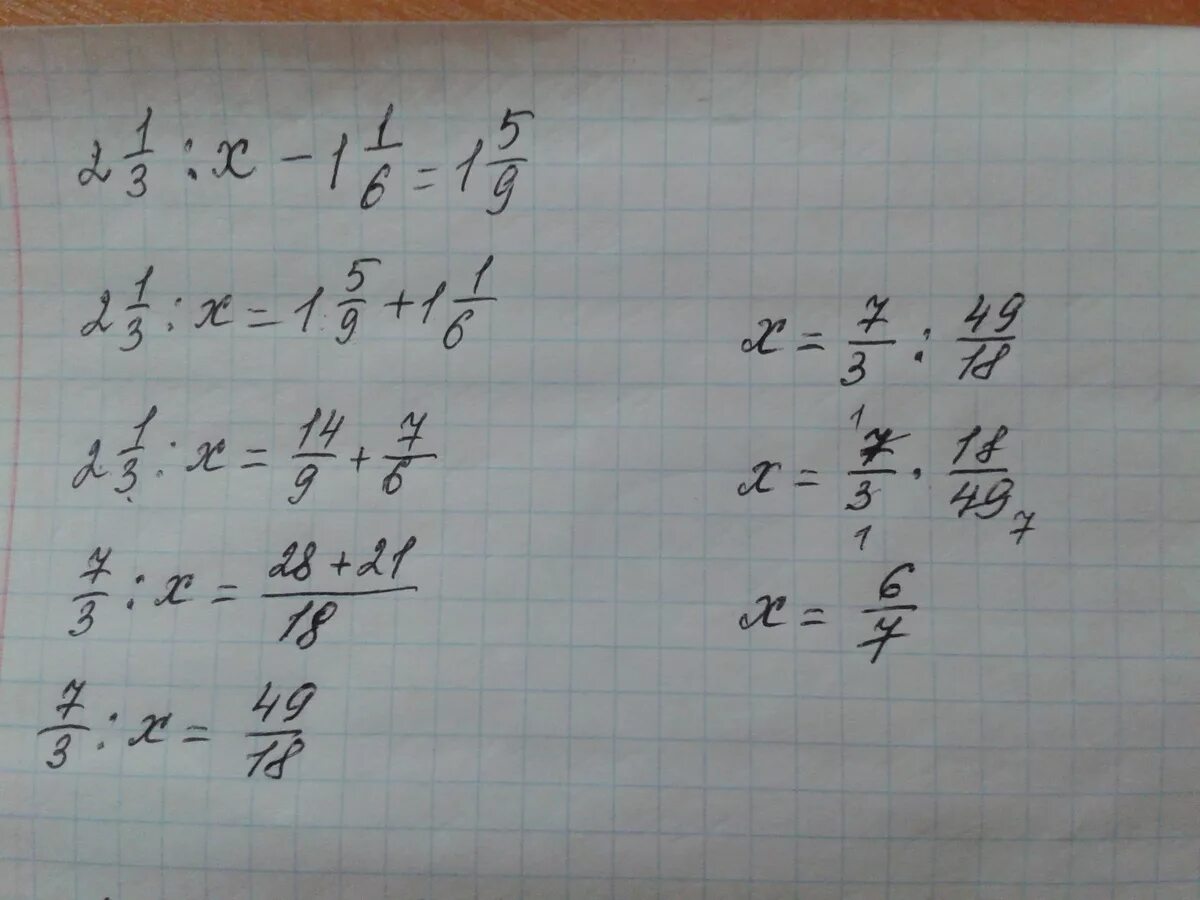 2 1/3 : x - 1 1/6 = 1 5/9
2 1/3 : x = 1 5/9 + 1 1/6
2 1/3 : x = 14/9 + 7/6
7/3 : x = (28 + 21)/18
7/3 : x = 49/18
x = 7/3 : 49/18
1
x = 7/3 · 18/49 7
1
x = 6/7